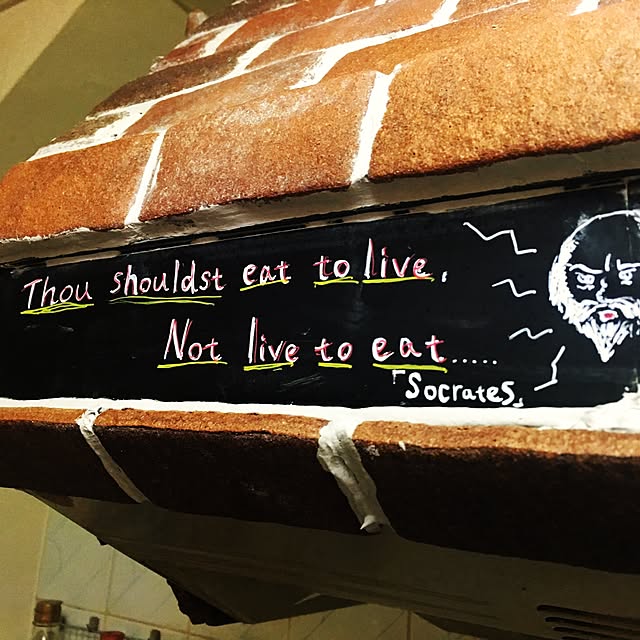 Thou shouldst eat to live,
Not live to eat.....
「Socrates」